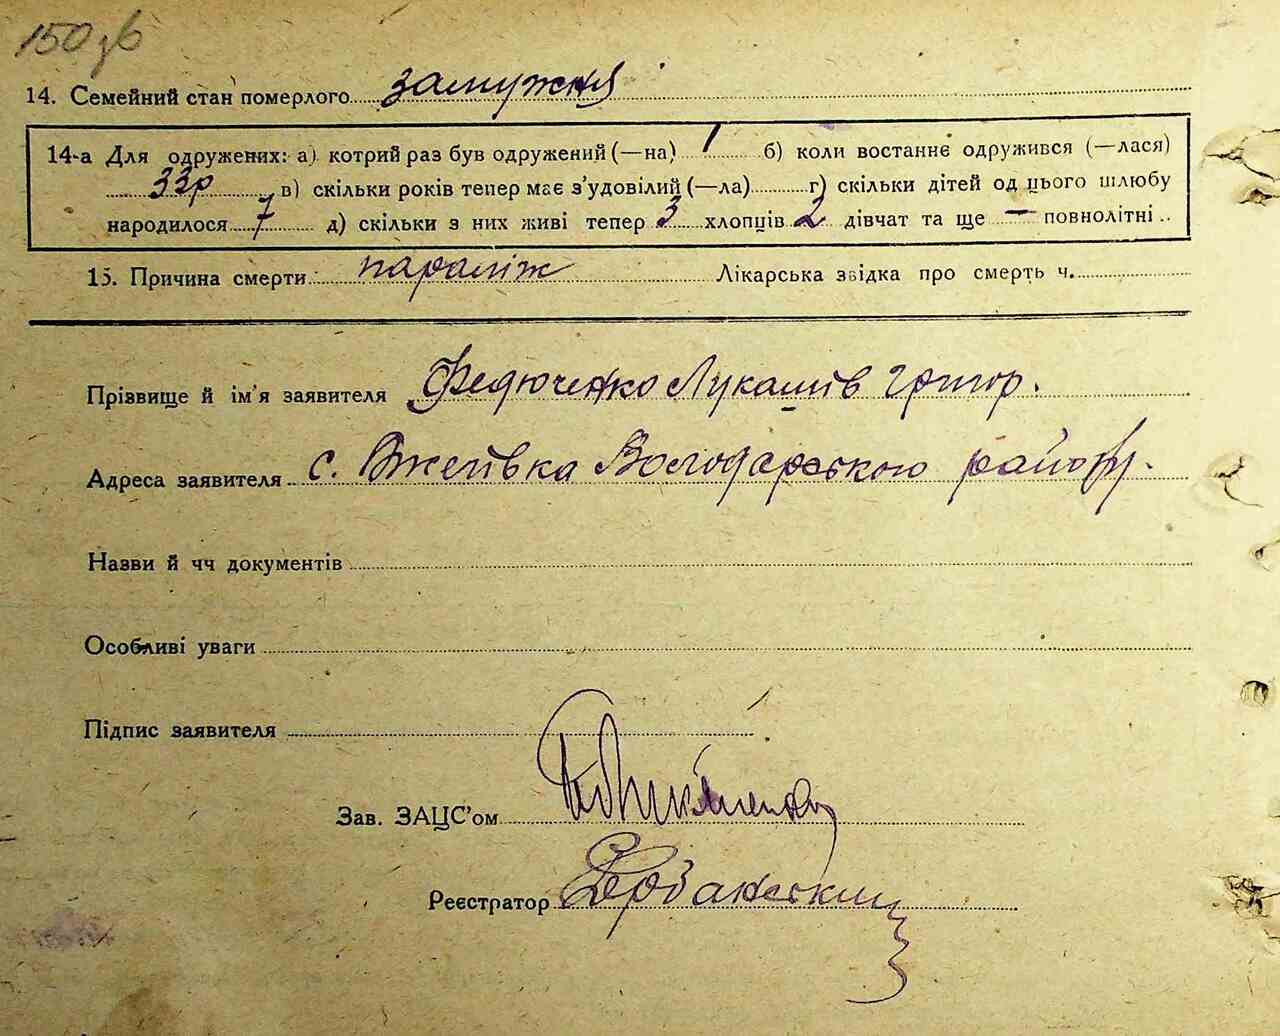 150 зв
14. Семейний стан померлого замужня
14-а Для одружених: а) котрий раз був одружений (—на) 1 б) коли востаннє одружився (—лася)
33р в) скільки років тепер має з'удовілий (—ла) г) скільки дітей од цього шлюбу
народилося 7 д) скільки з них живі тепер 3 хлопців 2 дівчат та ще — повнолітні
15. Причина смерти параліж Лікарська звідка про смерть ч.
Прізвище й ім'я заявителя Федюченко Лукашів Григор.
Адреса заявителя с. Володарською район
Назви й чч документів
Особливі уваги
Підпис заявителя
Зав. ЗАЦС'ом
Реєстратор